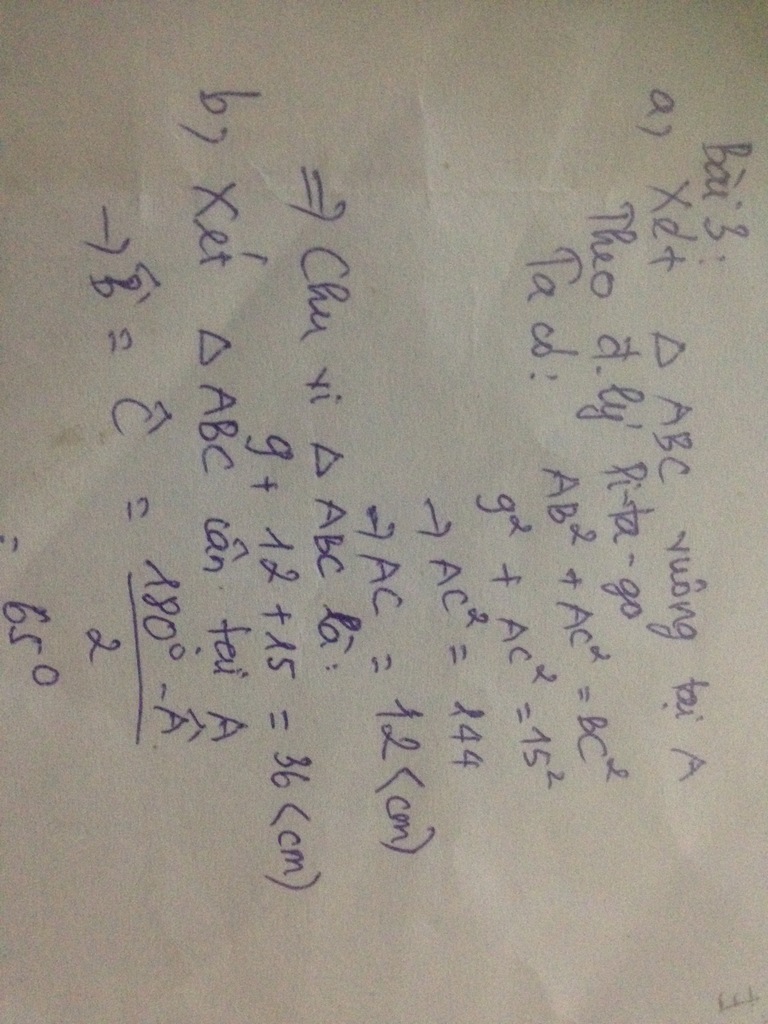 Bài 3:
a, Xét Δ ABC vuông tại A
Theo đ.lý Pi-ta-go
Ta có: AB² + AC² = BC²
9² + AC² = 15²
→ AC² = 144
→ AC = 12 (cm)
⇒ Chu vi Δ ABC là:
9 + 12 + 15 = 36 (cm)
b, Xét Δ ABC cân tại A
→ B̂ = Ĉ = (180° - Â) / 2
= 65°